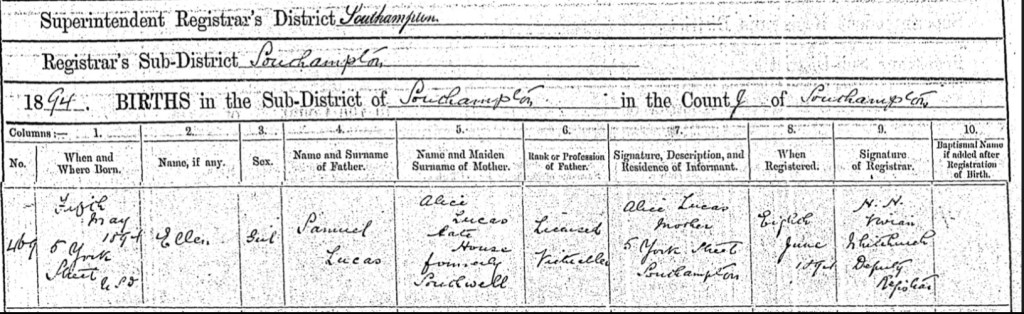 Superintendent Registrar's District Southampton
Registrar's Sub-District Southampton
1894. BIRTHS in the Sub-District of Southampton in the County of Southampton
Columns:— 1. 2. 3. 4. 5. 6. 7. 8. 9. 10.
No. When and Where Born. Name, if any. Sex. Name and Surname of Father. Name and Maiden Surname of Mother. Rank or Profession of Father. Signature, Description, and Residence of Informant. When Registered. Signature of Registrar. Baptismal Name if added after Registration of Birth.
469
Fifth
May
1894
5 York
Street
U.S.D
Ellen
Girl
Samuel
Lucas
Alice
Lucas
late
House
formerly
Southwell
Licensed
Victualler
Alice Lucas
Mother
5 York Street
Southampton
Eighth
June
1894
H. H.
Vivian
Whitchurch
Deputy
Registrar